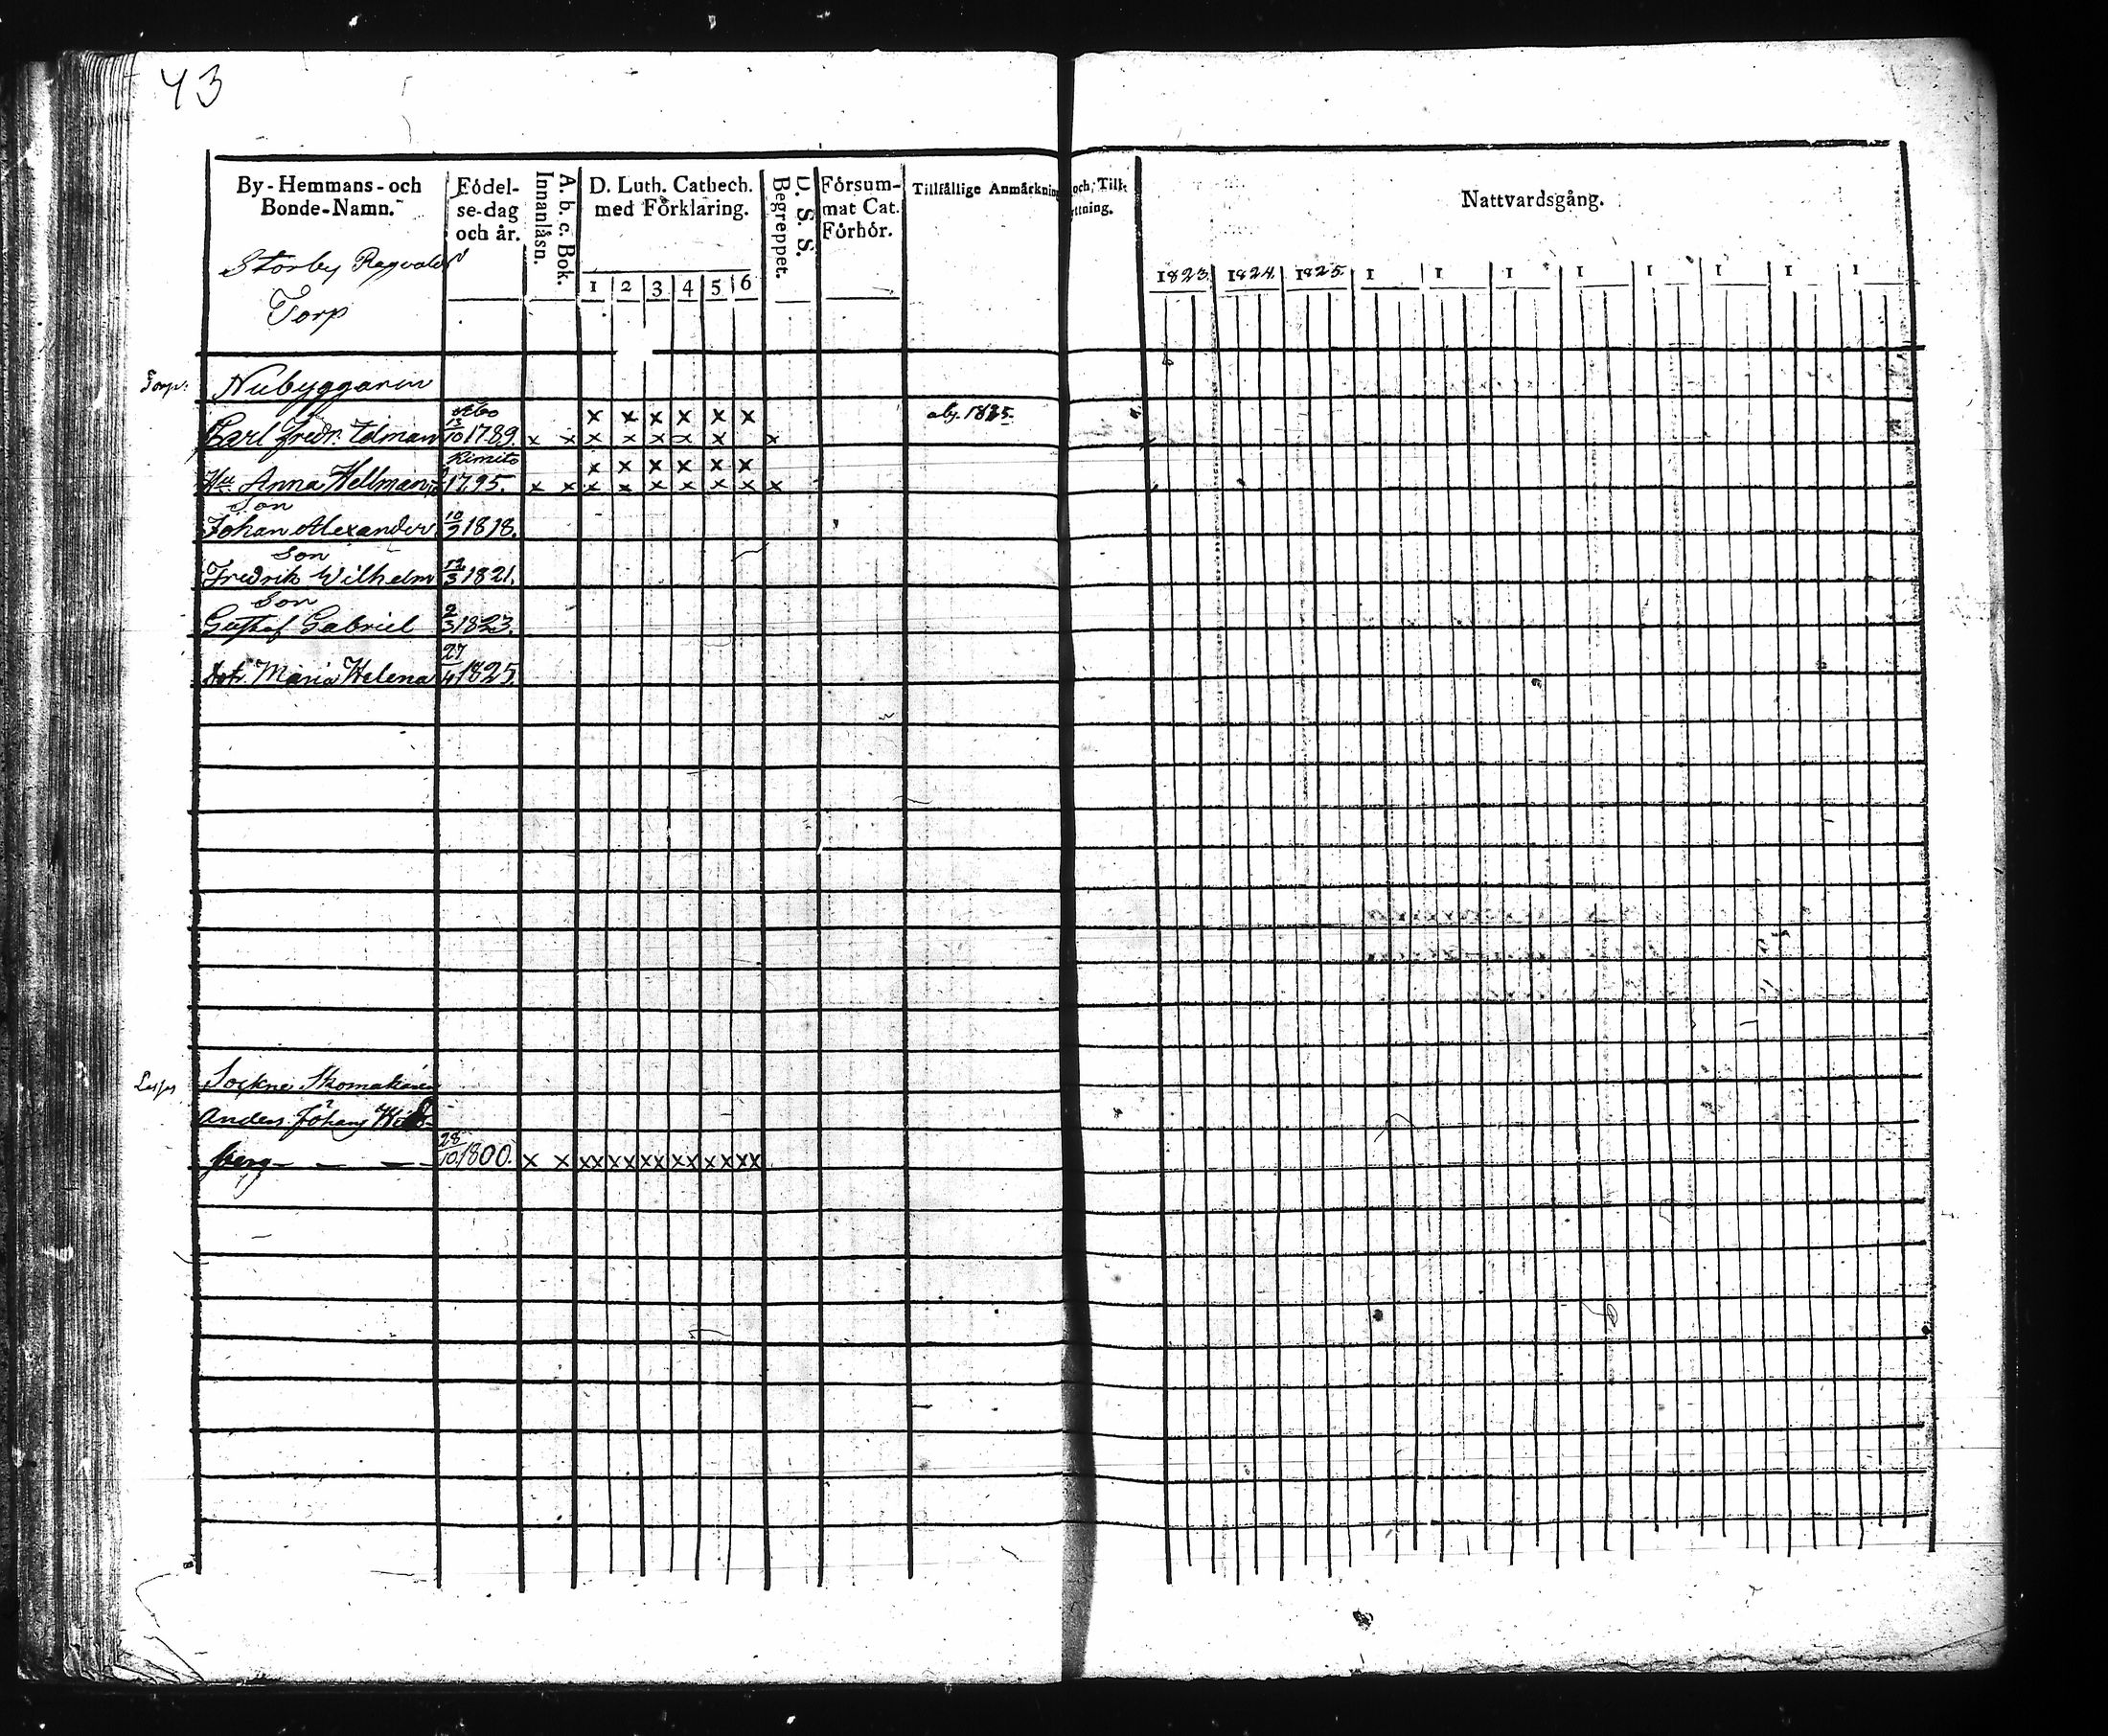 43
By-Hemmans-och
Bonde-Namn.
Födel-
se-dag
och år.
A. b. c. Bok.
Innanläsn.
D. Luth. Cathech.
med Förklaring.
1 2 3 4 5 6
D. S. S.
Begreppet.
Försum-
mat Cat.
Förhör.
Tillfällige Anmärkning och Till-
Nattvardsgång.
1823 1824 1825 1 1 1 1 1 1 1 1
Storby Regvalds
Torp
Torp. Nubyggaren
Åbo x x x x x x abs. 1825.
Carl Fredr. Edman 13/10 1789. x x x x x x x x
Kimito x x x x x x
Hu Anna Hellman 1795. x x x x x x x x x
Son
Johan Alexander 10/9 1818.
Son
Fredrik Wilhelm 12/3 1821.
Son
Gustaf Gabriel 2/3 1823.
dot. Maria Helena 27/4 1825.
Sockne Skomakaren
Anders Johans
berg - - - 28/10 1800. x x xx xx xx xx xx xx